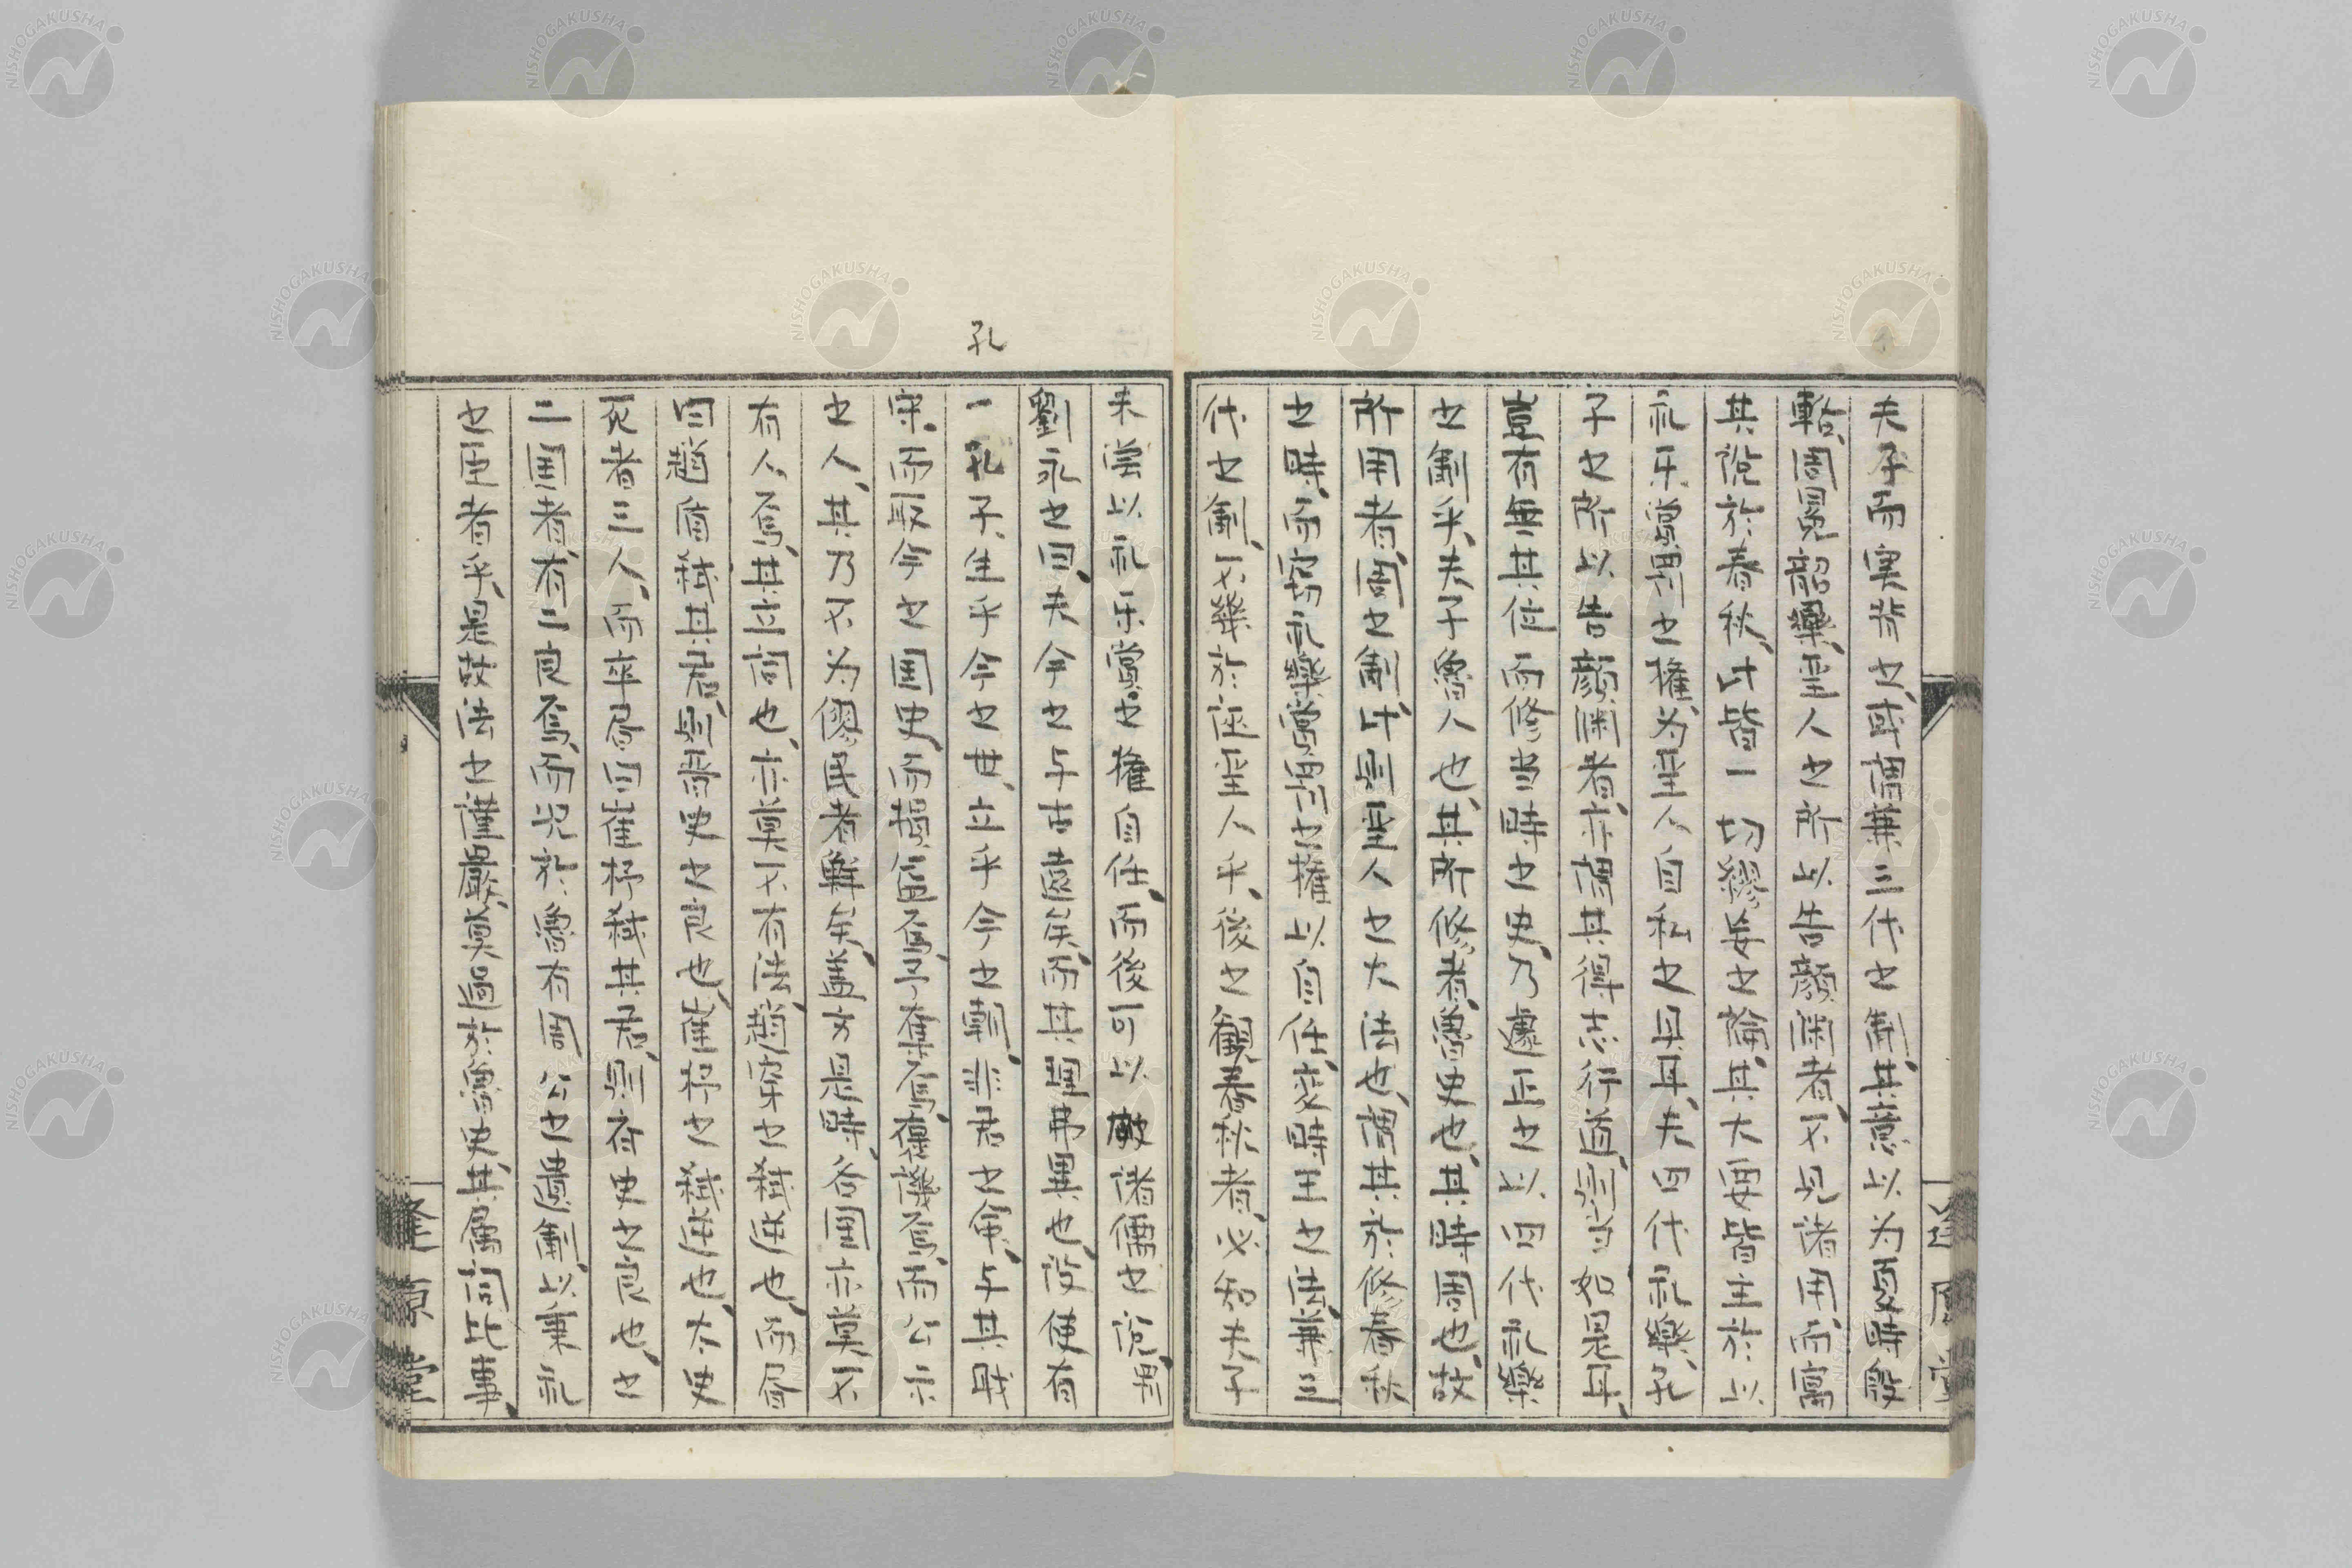 夫子而実背之、或謂兼三代之制、其意以为夏時殷
輅、周冕韶樂、聖人之所以告顔渕者、不見諸用、而寓
其説於春秋、此皆一切繆妄之論、其大要皆主於以
礼乐賞罰之権、为聖人自私之具耳、夫四代礼樂、孔
子之所以告顔渕者、亦謂其得志行道、則当如是耳、
豈有無其位而修当時之史、乃遽正之以四代礼樂
之制乎、夫子魯人也、其所修者、魯史也、其時周也、故
所用者、周之制、此則聖人之大法也、謂其於修春秋
之時、而窃礼樂賞罰之権以自任、変時王之法、兼三
代之制、不幾於誣聖人乎、後之観春秋者、必知夫子
未嘗以礼乐賞之権自任、而後可以破諸儒之説、罪
劉永之曰、夫今之与古遠矣、而其理弗異也、設使有
孔
一孔子、生乎今之世、立乎今之朝、非君之命、与其職
守、而取今之国史、而損益焉、予奪焉、襃譏焉、而公示
之人、其乃不为僇民者鮮矣、盖方是時、各国亦莫不
有人焉、其立词也、亦莫不有法、趙穿之弑逆也、而昏
曰趙盾弑其君、則晋史之良也、崔杼之弑逆也、太史
死者三人、而卒昏曰崔杼弑其君、則斉史之良也、之
二国者、有二良焉、而况於魯有周公之遺制、以秉礼
之臣者乎、是故法之謹嚴、莫過於魯史、其属詞比事、